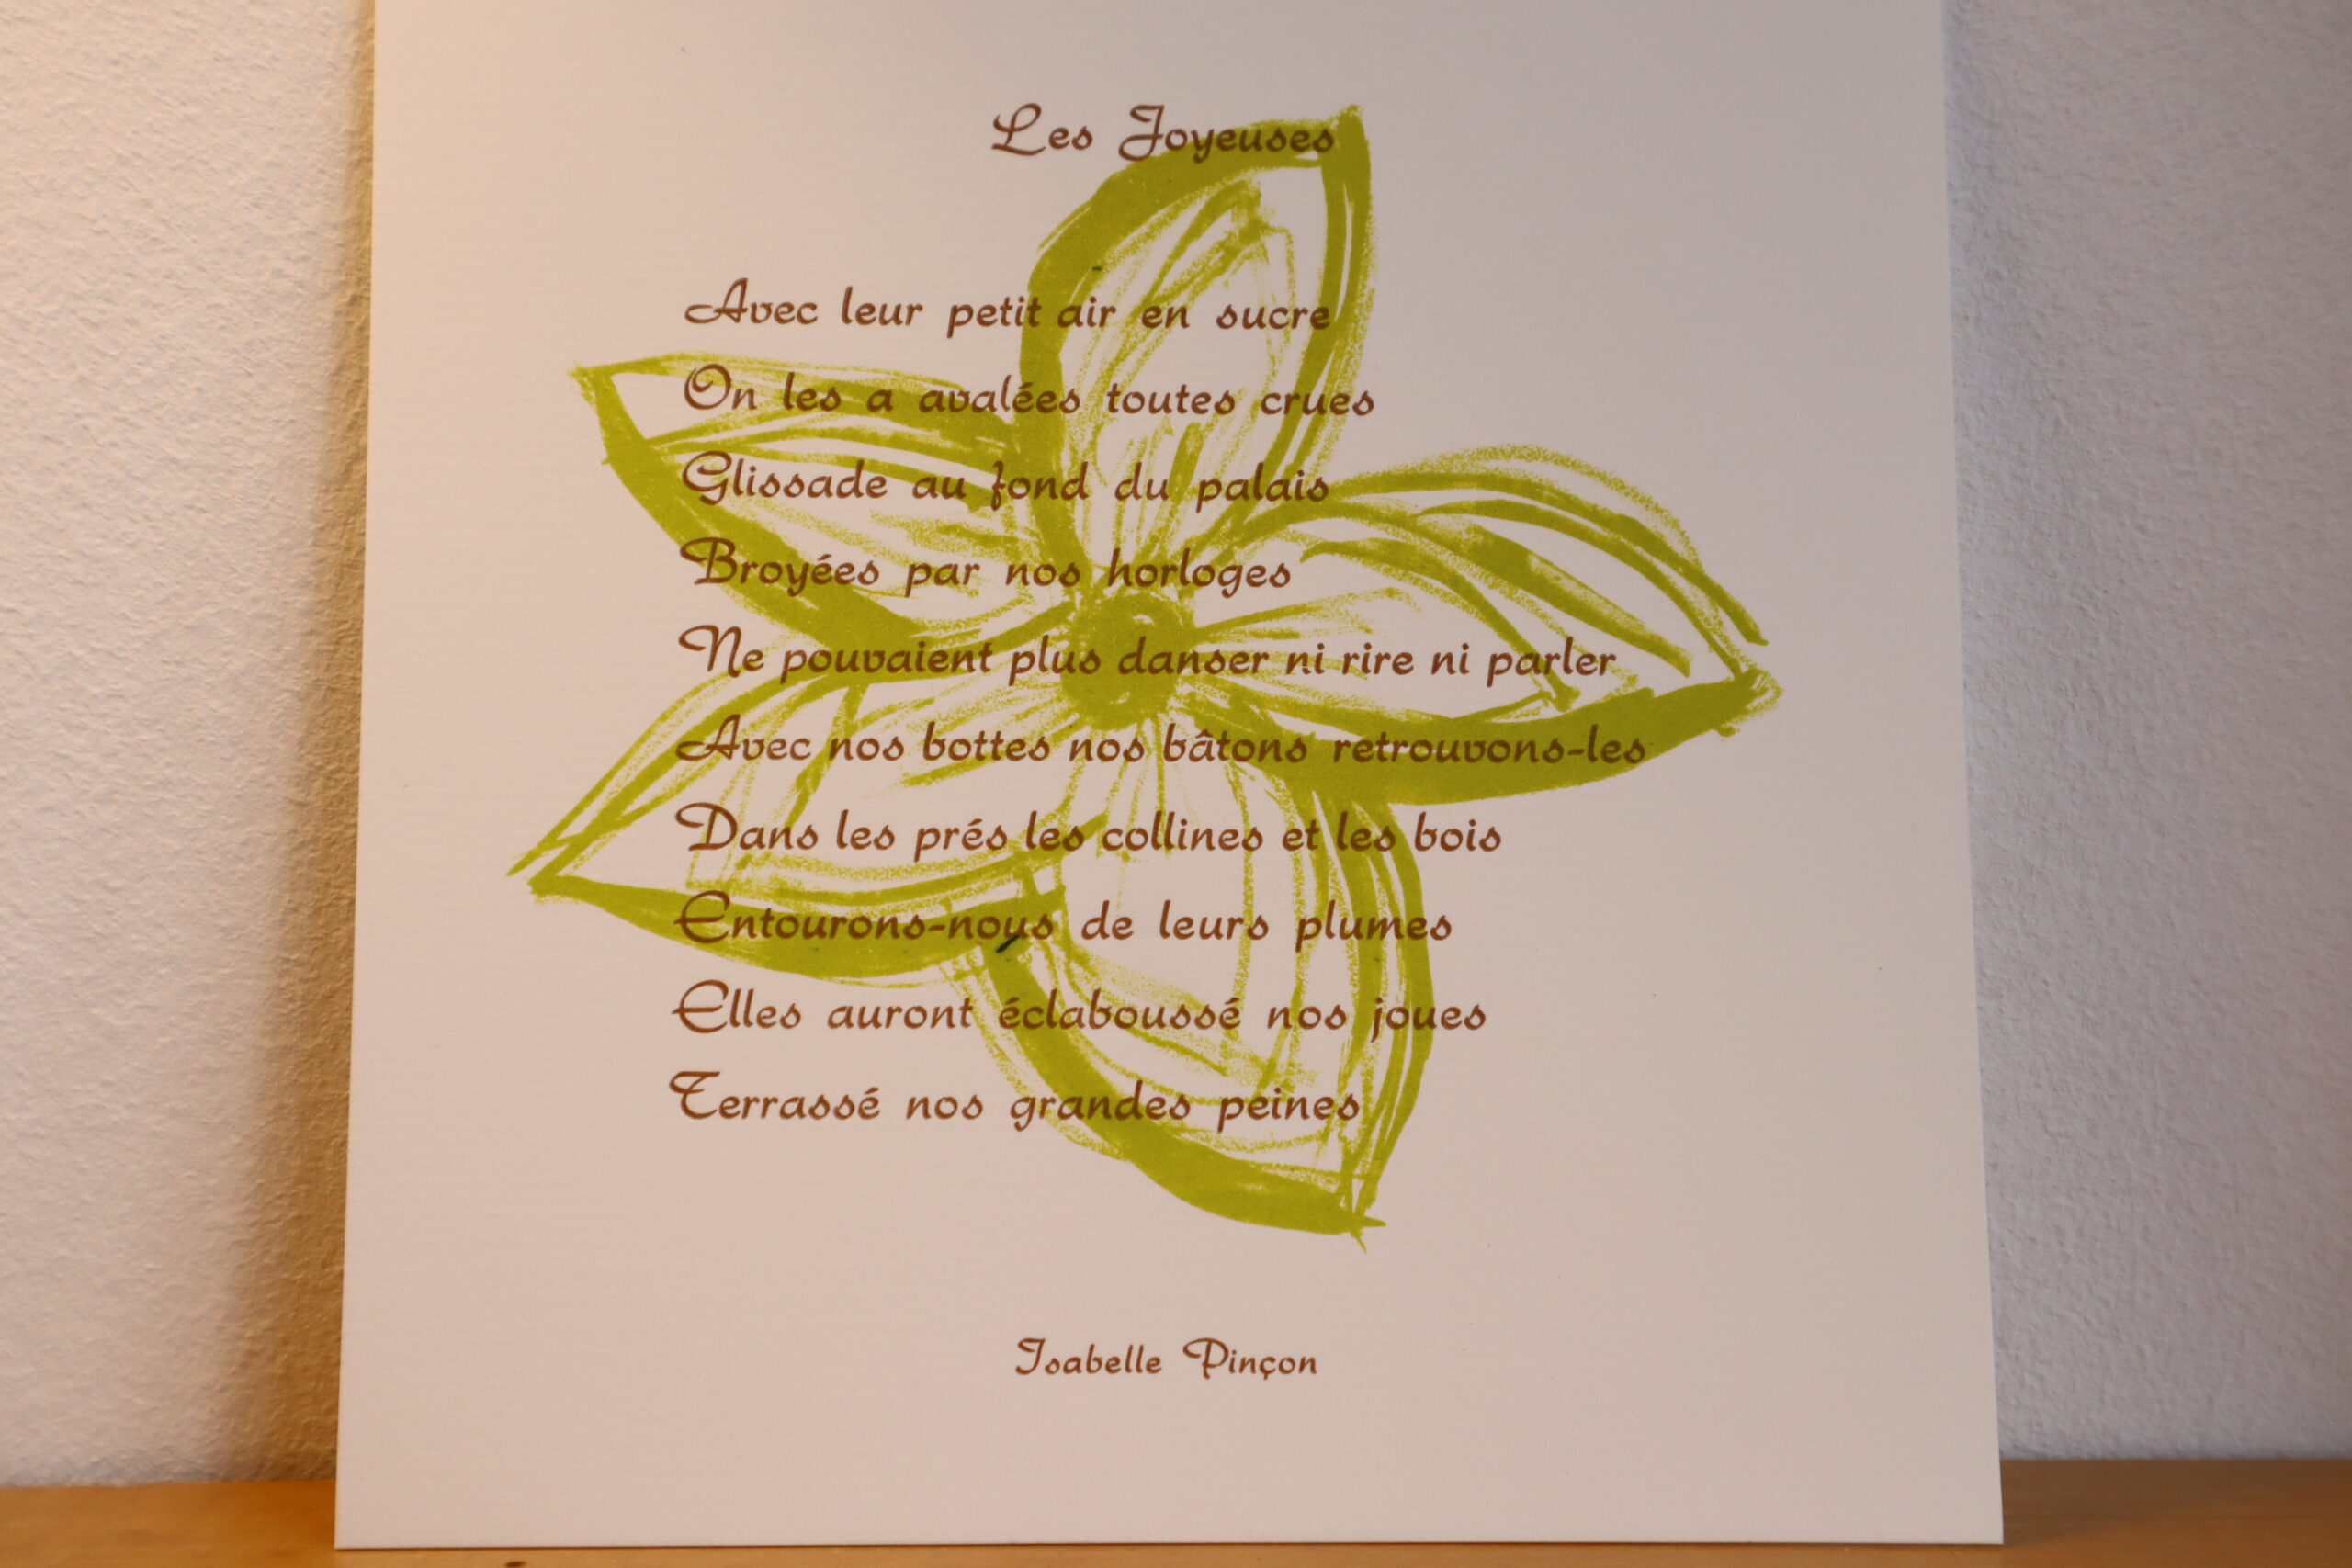 Les Joyeuses
Avec leur petit air en sucre
On les a avalées toutes crues
Glissade au fond du palais
Broyées par nos horloges
Ne pouvaient plus danser ni rire ni parler
Avec nos bottes nos bâtons retrouvons-les
Dans les prés les collines et les bois
Entourons-nous de leurs plumes
Elles auront éclaboussé nos joues
Terrassé nos grandes peines
Isabelle Pinçon